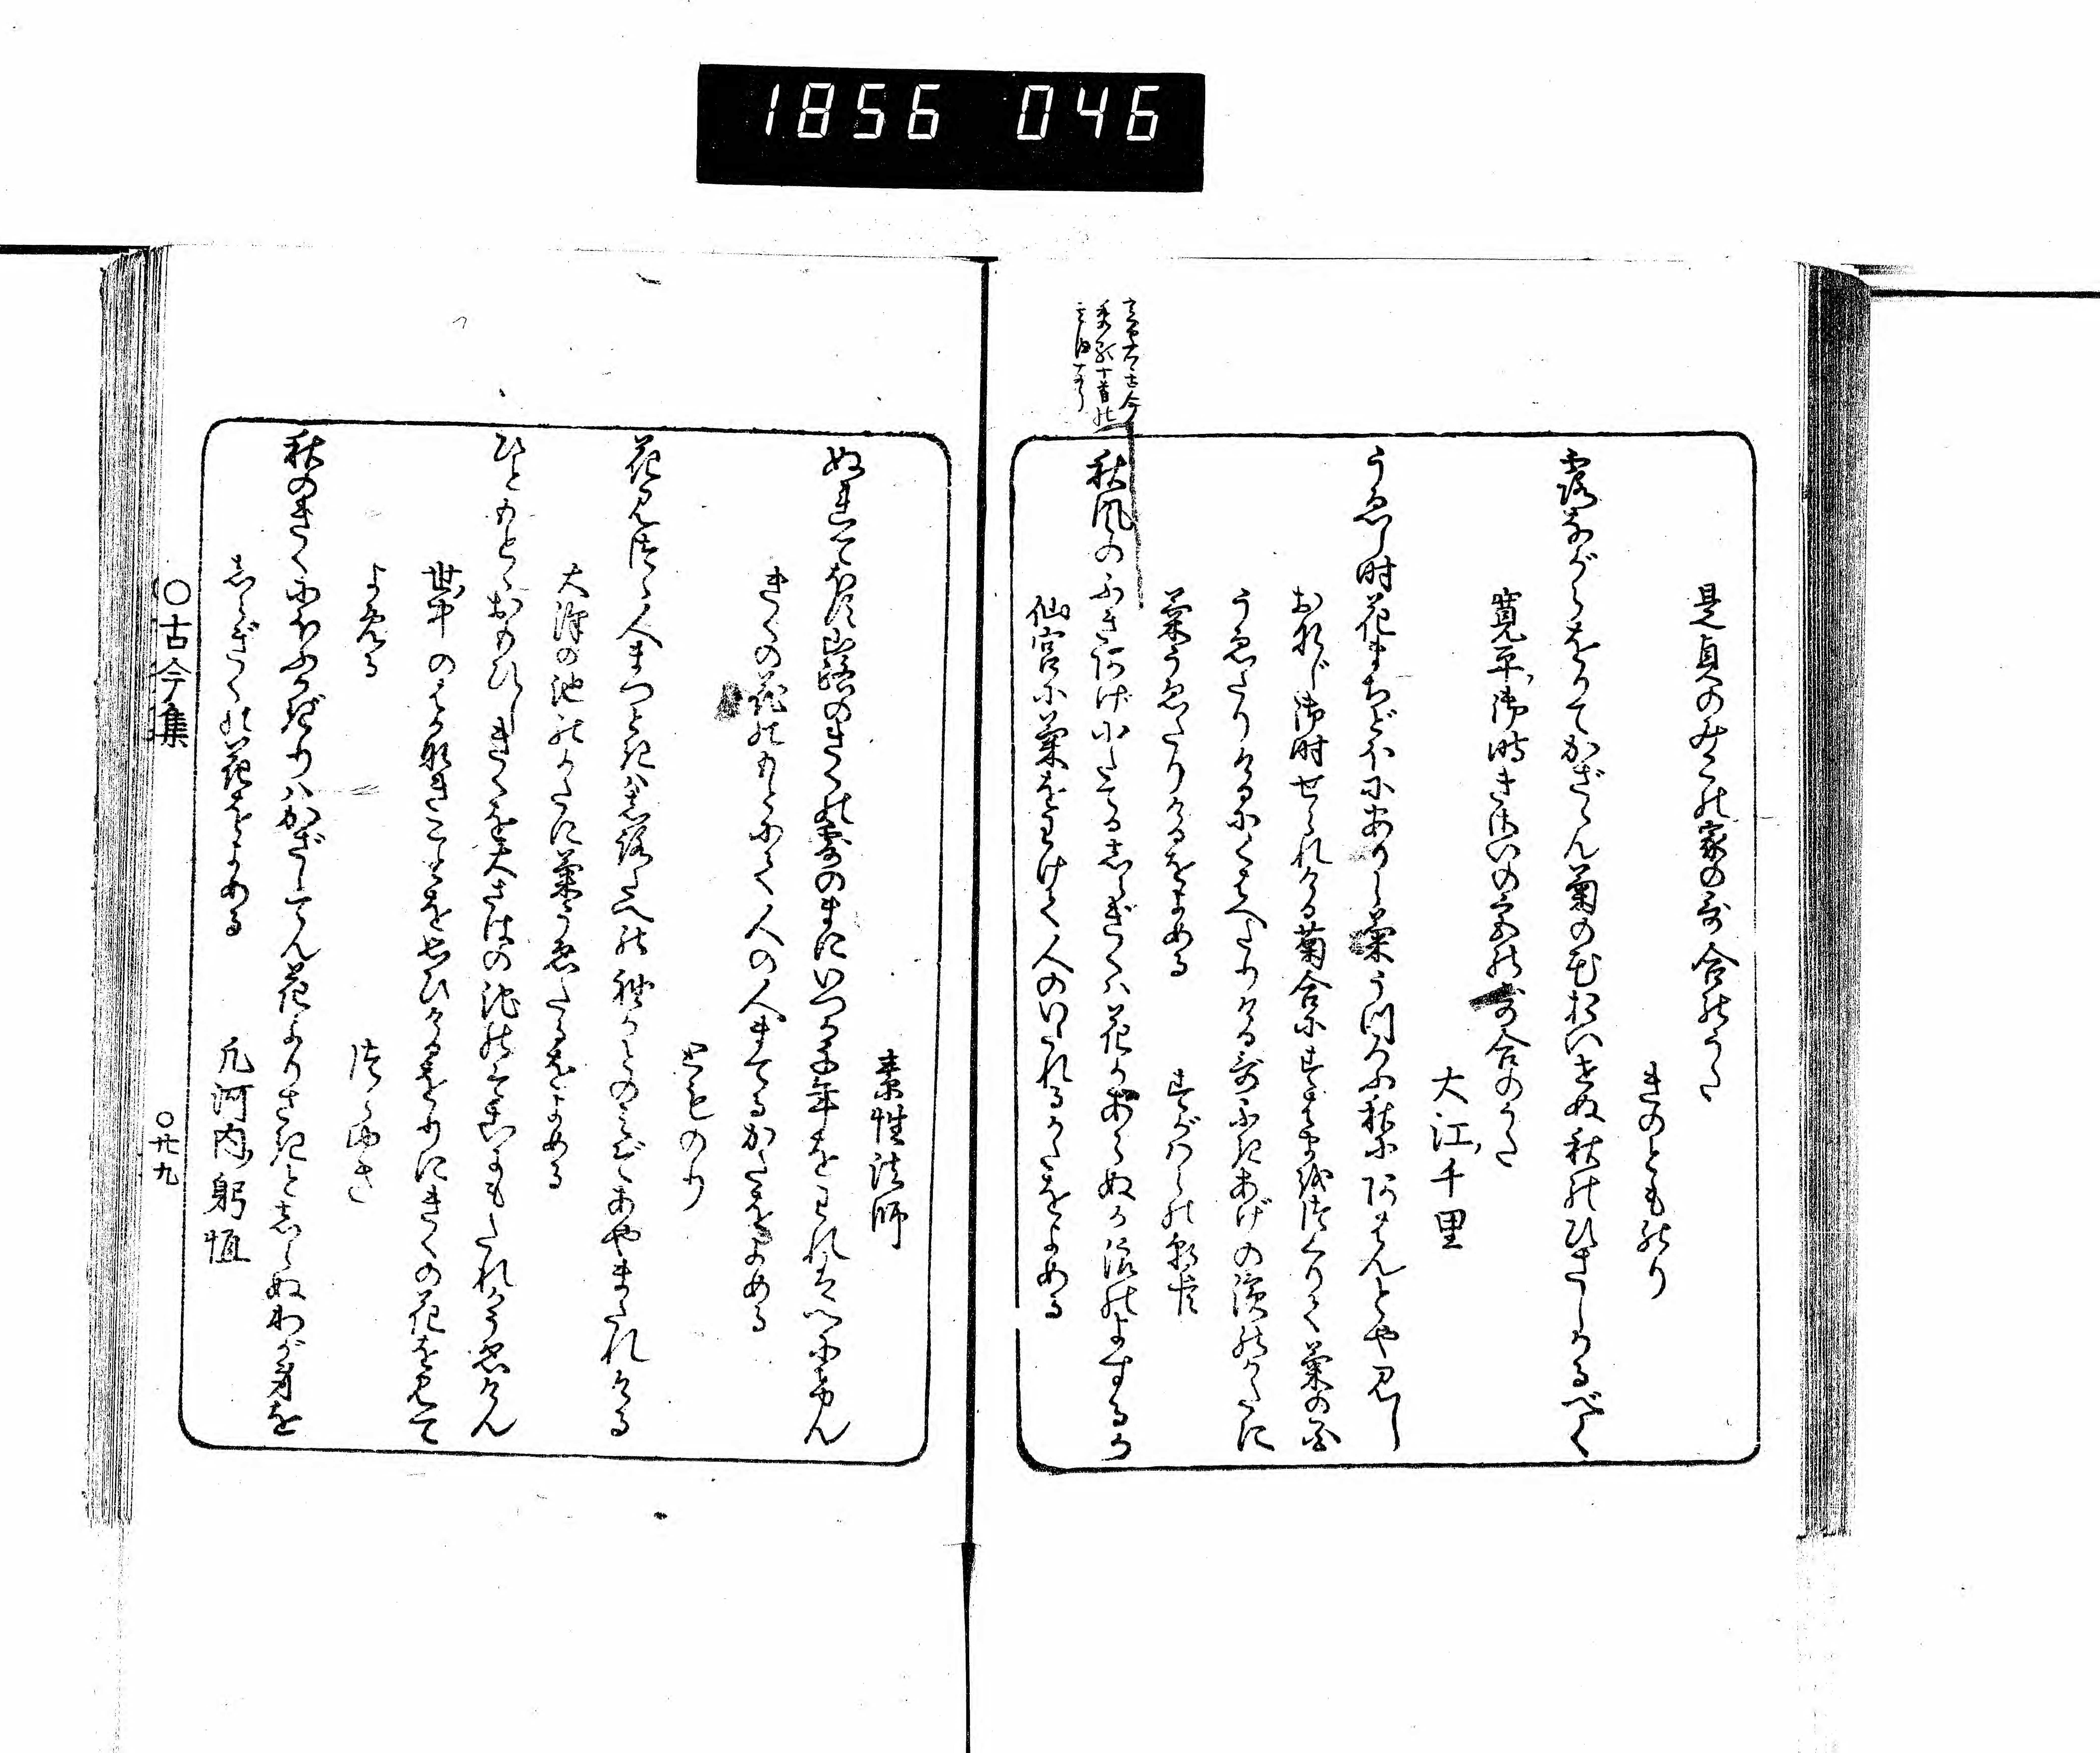 1856 046
是貞のみこの家の哥合のうた
きのとものり
露ながらをりてかざさん菊の花おいせぬ秋のひさしかるべく
寛平御時きさいの宮の哥合のうた
大江千里
うゑし時花まちどほにありし菊うつろふ秋にあはんとや見し
おなじ御時せられける菊合にすはまをつくりて菊の花
うゑたりけるにくはへたりける哥ふきあげの濱のかたに
菊うゑたりけるをよめる
すがはらの朝臣
秋風のふきあげにたてるしらぎくハ花かあらぬか浪のよするか
仙宮に菊をわけて人のいたれるかたをよめる
素性法師
ぬれてほす山路のきくの露のまにいつか千年をわれはへにけん
きくの花のもとにて人の人まてるかたをよめる
とものり
花見つゝ人まつときハ白妙の袖かとのみぞあやまたれける
大澤の池のかたに菊うゑたるをよめる
ひともとゝおもひしきくを大さはの池のそこにもたれかうゑけん
世中のはかなきことをおもひけるをりにきくの花を見て
よめる
つらゆき
秋のきくにほふかぎりハかざしてん花よりさきとしらぬわが身を
しらぎくの花をよめる
凡河内躬恒
○古今集
○廿九